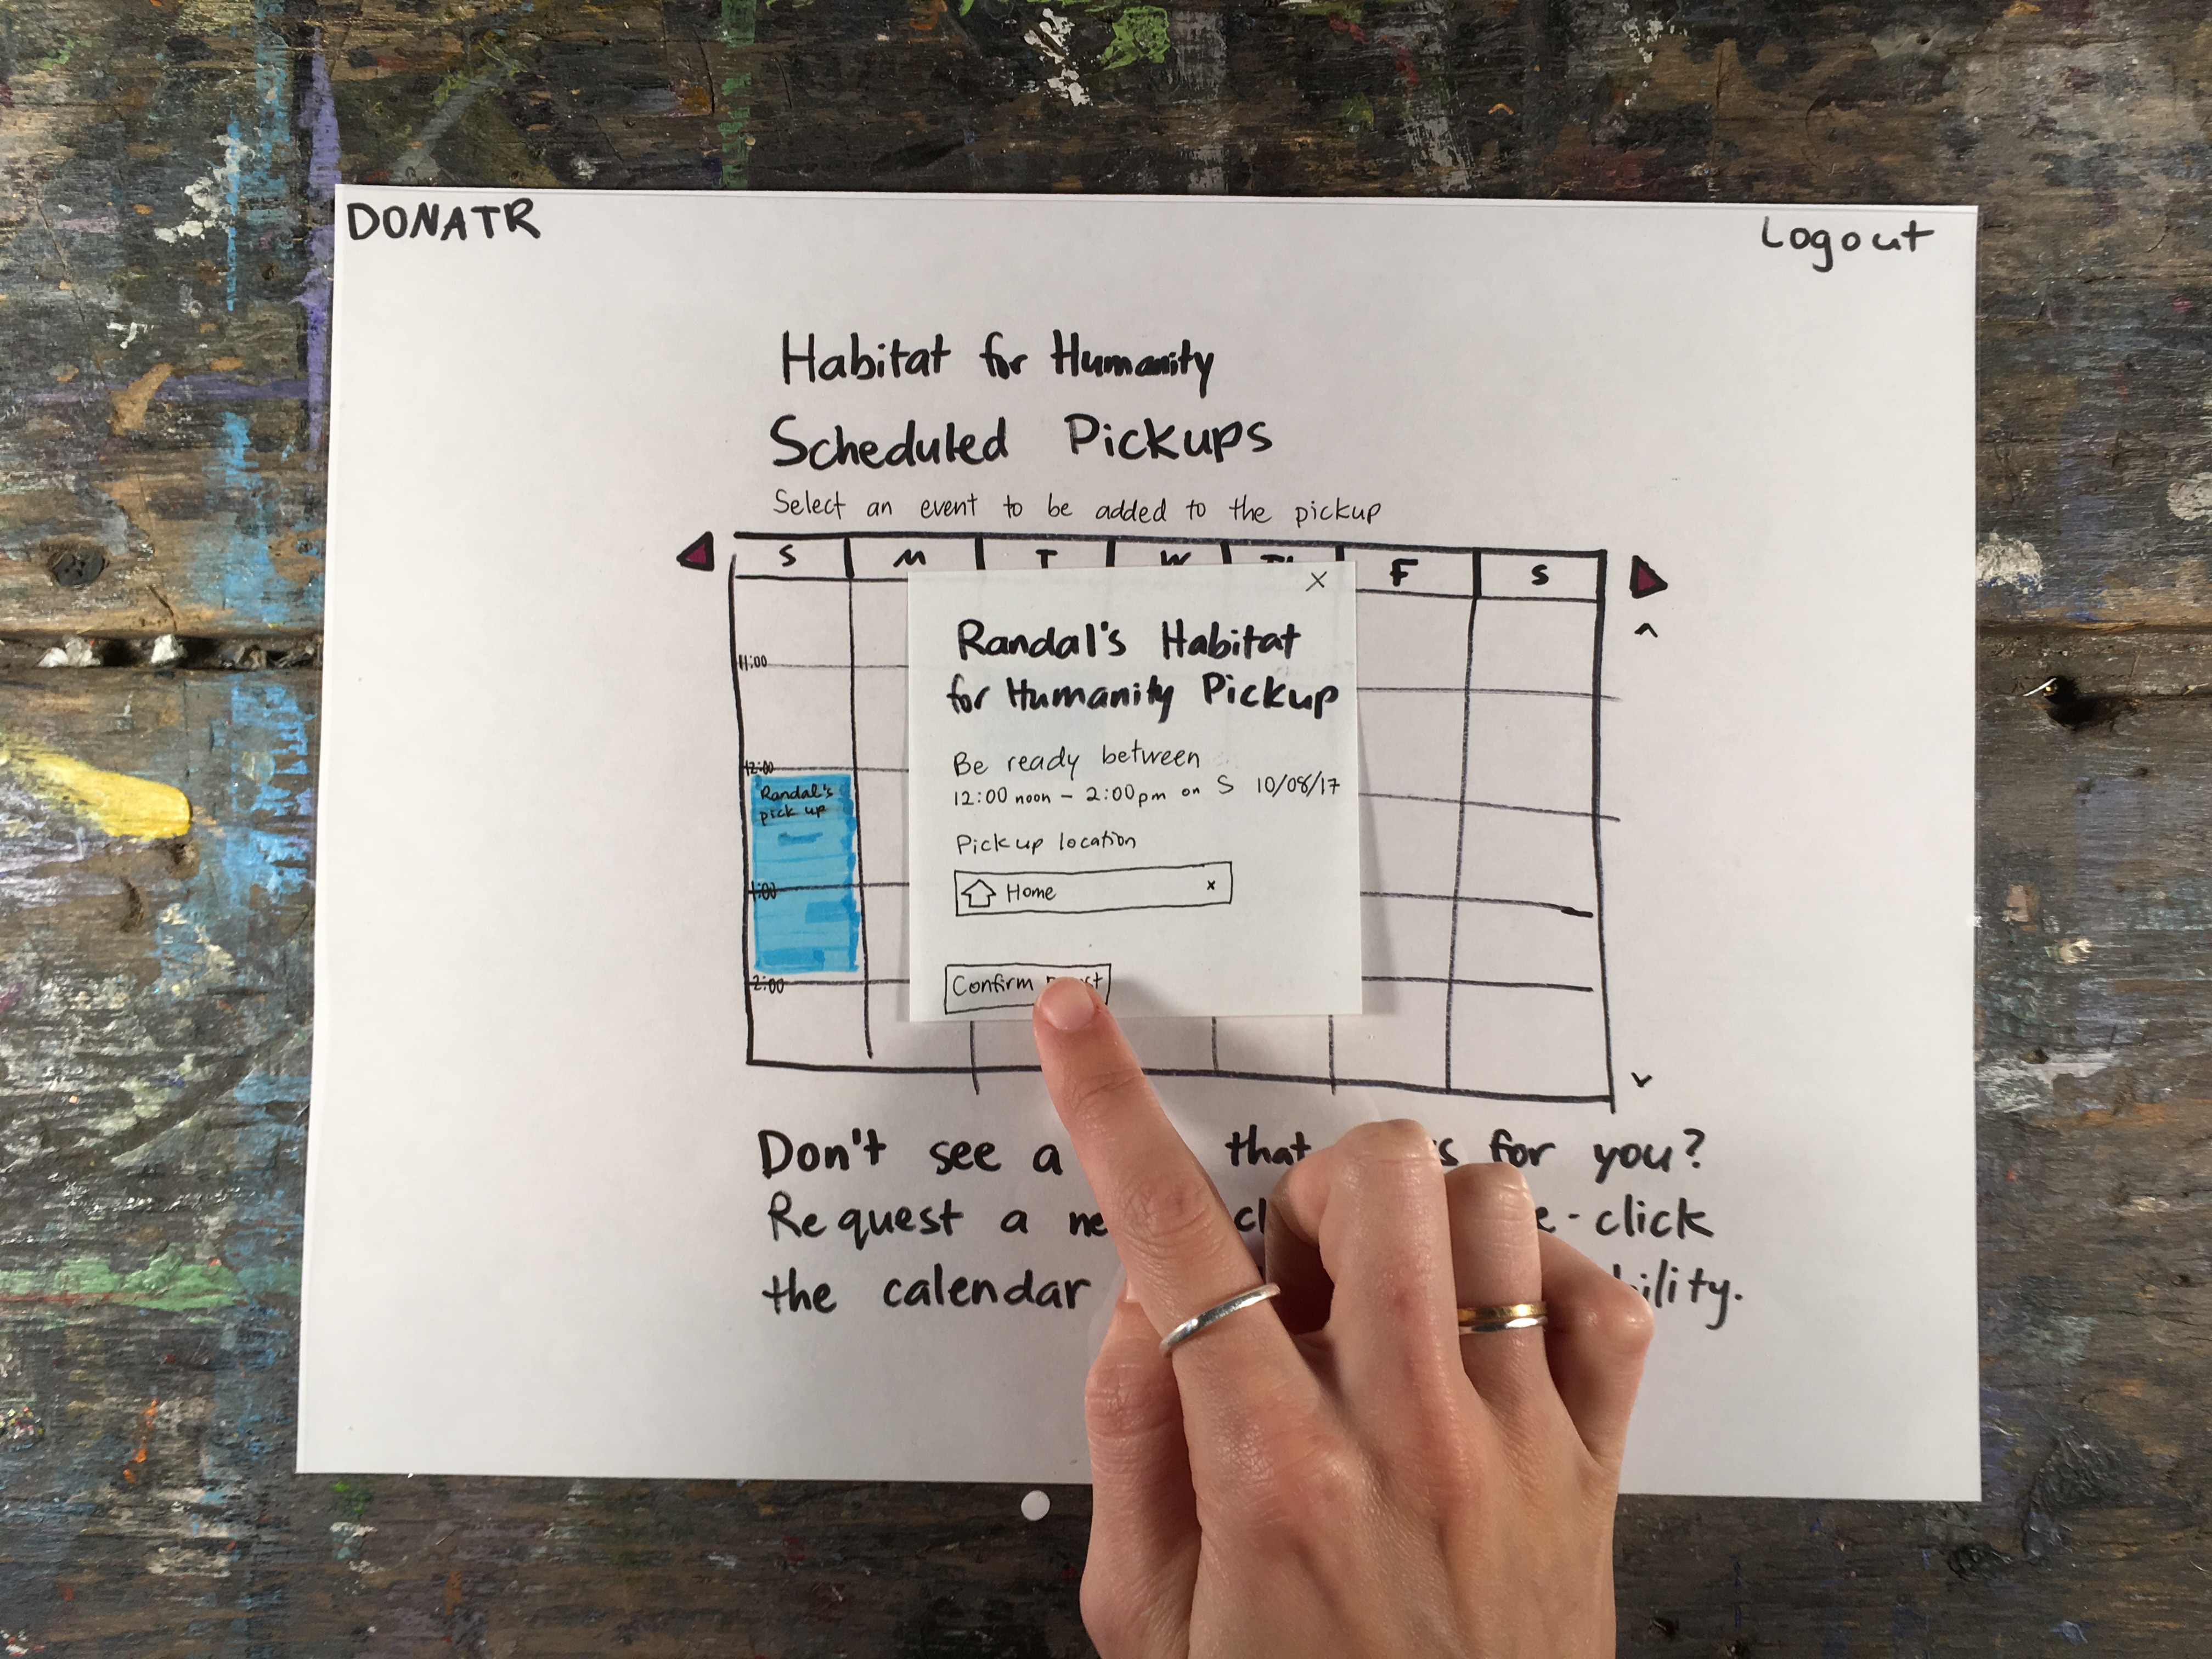 DONATR
Logout
Habitat for Humanity
Scheduled Pickups
Select an event to be added to the pickup
S M T W F S
11:00
12:00
Randal's
pick up
1:00
2:00
X
Randal's Habitat
for Humanity Pickup
Be ready between
12:00 noon - 2:00pm on S 10/08/17
Pick up location
Home x
Confirm
Don't see a that for you?
Request a -click
the calendar